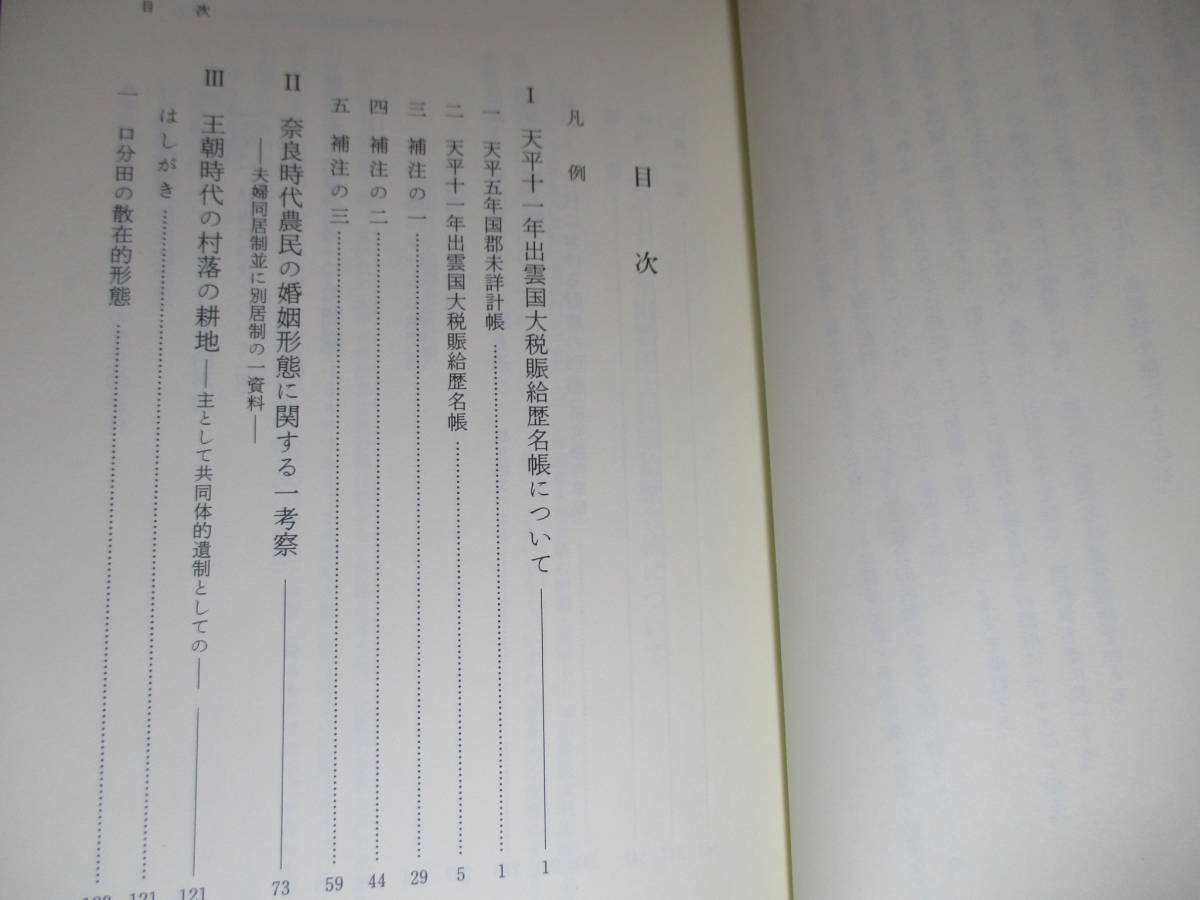 目次
凡例
I 天平十一年出雲国大税賑給歴名帳について 1
一 天平五年国郡未詳計帳 1
二 天平十一年出雲国大税賑給歴名帳 5
三 補注の一 29
四 補注の二 44
五 補注の三 59
II 奈良時代農民の婚姻形態に関する一考察 73
――夫婦同居制並に別居制の一資料――
III 王朝時代の村落の耕地――主として共同体的遺制としての―― 121
はしがき 121
一 口分田の散在的形態
目次